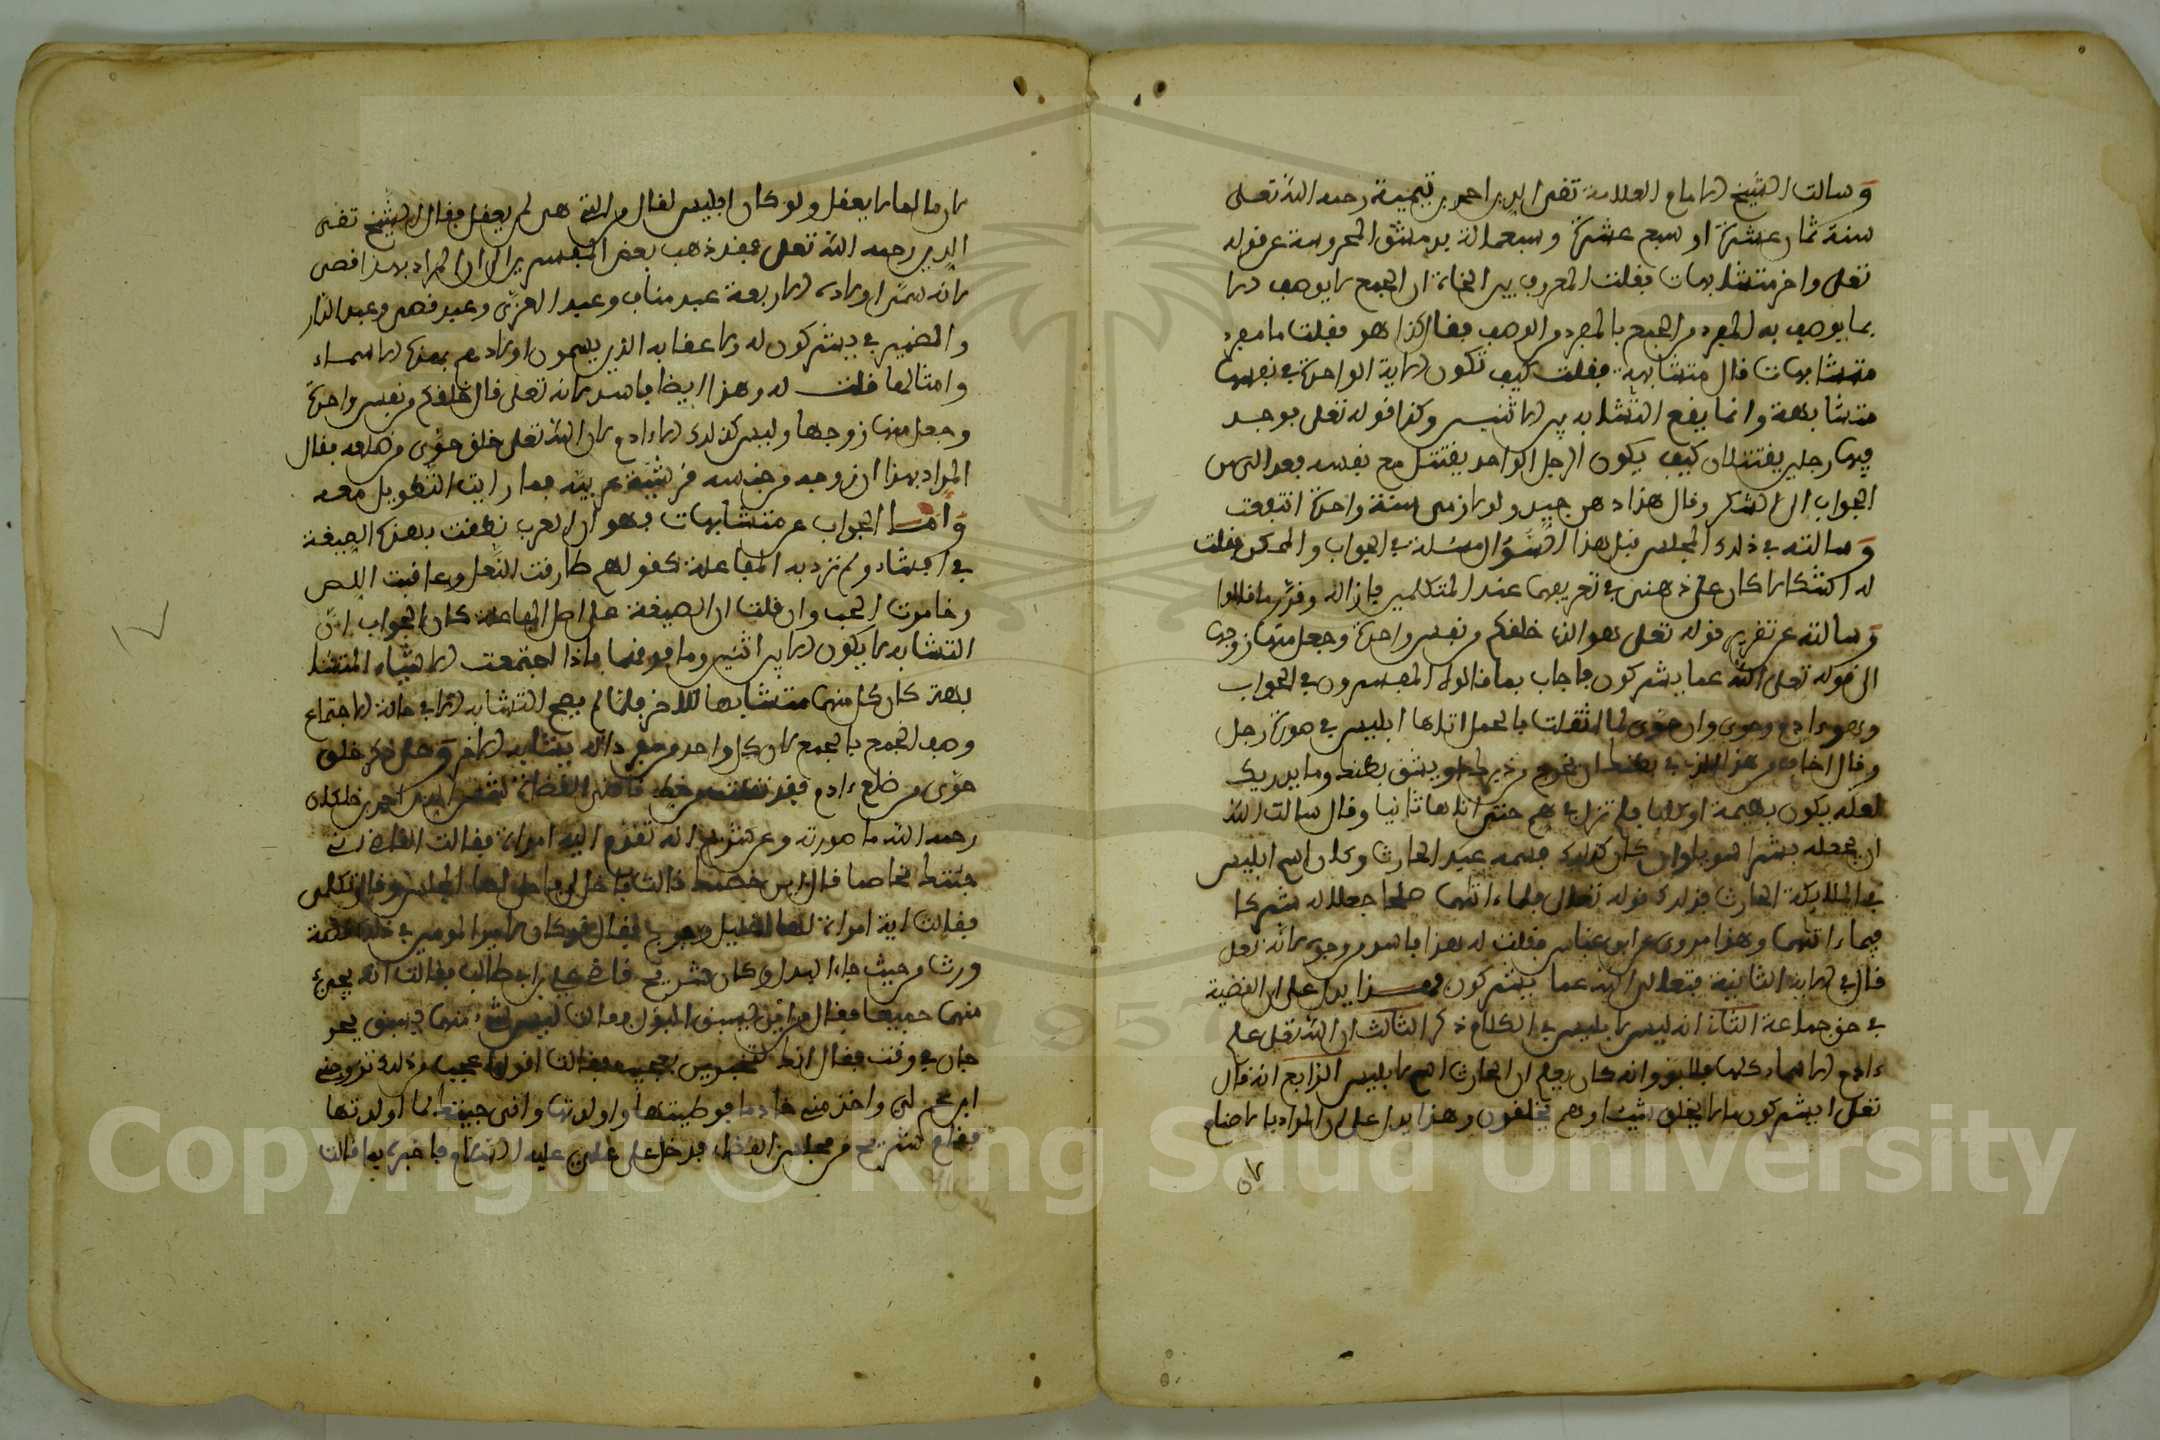 وسالت الشيخ الامام العلامة تقي الدين احمد بن تيمية رحمه الله تعلى
سنة ثمان عشرة او سبع عشرة وسبعمائة بدمشق المحروسة عن قوله
تعلى واخر متشابهات فقلت المعروف بين النحاة ان الجمع لا يوصف الا
بما يوصف به المفرد من الجمع بالمفرد من الوصف فقال كذا هو فقلت ما مفرد
متشابهات قال متشابهة فقلت كيف تكون الاية الواحدة في نفسها
متشابهة وانما يقع التشابه بين الاثنين وكذا قوله تعلى فوجد
فيها رجلين يقتتلان كيف يكون الرجل الواحد يقتتل مع نفسه فعدل من
الجواب الى الشكر وقال هذا ذهن جيد ولو لازمتني سنة واحدة انتفعت
وسالته في ذلك المجلس قبل هذا السؤال مسئلة في الجواب والممكن فقلت
له اشكالا كان على ذهني في تعريفهما عند المتكلمين فازاله وقرر ما قالوا
وسالته عن تفسير قوله تعلى هو الذي خلقكم من نفس واحدة وجعل منها زوجها
الى قوله تعلى الله عما يشركون فاجاب بما قالوه المفسرون في الجواب
وهو ءادم وحوى وان حوى لما اثقلت بالحمل اتاها ابليس في صورة رجل
وقال اخاف من هذا الذي في بطنك ان يخرج من دبرك او يشق بطنك وما يدريك
لعله يكون بهيمة او كلبا فلم تزل في هم حتى اتاها ثانيا وقال سالت الله
ان يجعله بشرا سويا وان كان كذلك فسميه عبد الحارث وكان اسم ابليس
في الملايكة الحارث فذلك قوله تعالى فلما ءاتاهما صلحا جعلا له شركا
فيما ءاتاهما وهذا مروي عن ابن عباس فقلت له هذا فاسد من وجوه لانه تعلى
قال في الاية الثانية فتعالى الله عما يشركون فهذا يدل على ان القضية
في حق جماعة الثاني انه ليس لابليس في الكلام ذكر الثالث ان الله تعلى علم
ءادم الاسماء كلها فلا بد وانه كان يعلم ان الحارث اسم لابليس الرابع انه قال
تعلى ايشركون ما لا يخلق شيئا وهم يخلقون وهذا يدل على ان المراد بها الاصنام
لان
لان ما لما لا يعقل ولو كان ابليس لقال من التي هي لم يعقل فقال الشيخ تقي
الدين رحمه الله تعلى فقد ذهب بعض المفسرين الى ان المراد بهذا قصي
لانه سمى اولاده الاربعة عبد مناف وعبد العزى وعبد قصي وعبد الدار
والضمير في يشركون له ولاعقابه الذين يسمون اولادهم بهذه الاسماء
وامثالها قلت له وهذا ايضا فاسد لانه تعلى قال خلقكم من نفس واحدة
وجعل منها زوجها وليس كذلك الا ءادم لان الله تعلى خلق حوى من ضلعه فقال
المراد بهذا ان زوجه من جنسه قرشية عربية فما رايت التطويل معه
واما الجواب عن متشابهات فهو ان العرب نطقت بهذه الصيغة
في اشياء ولم ترد به المفاعلة كقولهم طارقت النعل وعاقبت اللص
وخامرت الحب وان قلت ان الصيغة على اصل المفاعلة كان الجواب ان
التشابه لا يكون الا بين اثنين وما فوقهما فاذا اجتمعت الاشياء المتشا
بهة كان كل منهما متشابها للاخر فلما لم يصح التشابه الا في حالة الاجتماع
وصف الجمع بالجمع لان كل واحد من مفرداته يشابه الاخر وحل ذكر خلق
حوى من ضلع ءادم فقد نقلت من خط قاضي القضاة شمس الدين احمد بن خلكان
رحمه الله ما صورته وعن شريح انه تقدم اليه امراة فقالت القاضي اني
جئتك مخاصما قال اين خصمك قالت فاخل لي فاخلى لها المجلس وقال تكلمي
فقالت اني امراة لها احليل وفرج فقال قد كان لامير المومنين في هذه قصة
ورث من حيث جاء البول وكان شريح قاضي علي بن ابي طالب فقالت انه يجيء
منهما جميعا فقال من اين يسبق البول فقالت ليس شيء منهما يسبق يخر
جان في وقت فقال انك لتخبرين بعجيب فقالت اقول اعجب من ذلك تزوجني
ابن عم لي واخذ مني خادما فوطيتها واولدتها واني جيتك لما اولدتها
فقام شريح من مجلس القضاء فدخل على علي عليه السلام فاخبره بما قالت
Copyright © King Saud University
1957